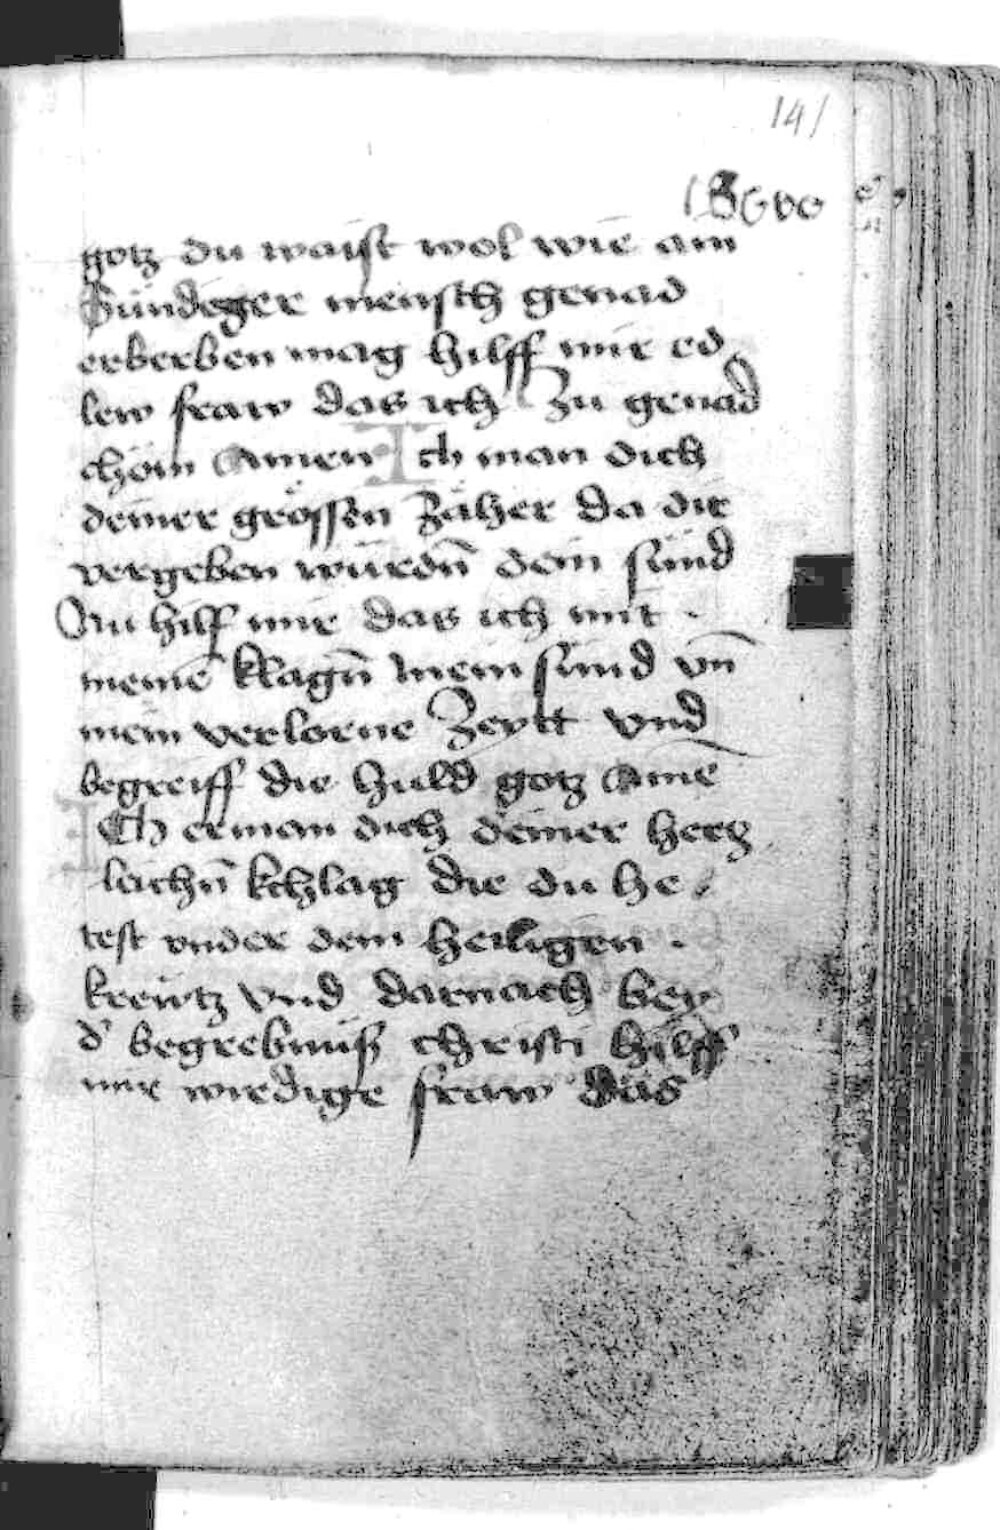 141
gotz du waist wol wie ain
Sündeger mensch genad
erberben mag hilff mir ed
lew fraw das ich Zu genad
chöm Amen Ich man dich
deiner grossen Zäher da dir
vergeben würdn̄ dein sünd
Nu hilf mir das ich mit
meinē klagn̄ mein sünd vn̄
mein verlorne Zeytt vnd
begreiff die huld gotz Amē
ICh erman dich deiner hertz
lichn̄ kchlag die du he
test vnder dem heiligen
kreütz vnd darnach bey
d' begrebnüß christi hilff
mir wirdige fraw das